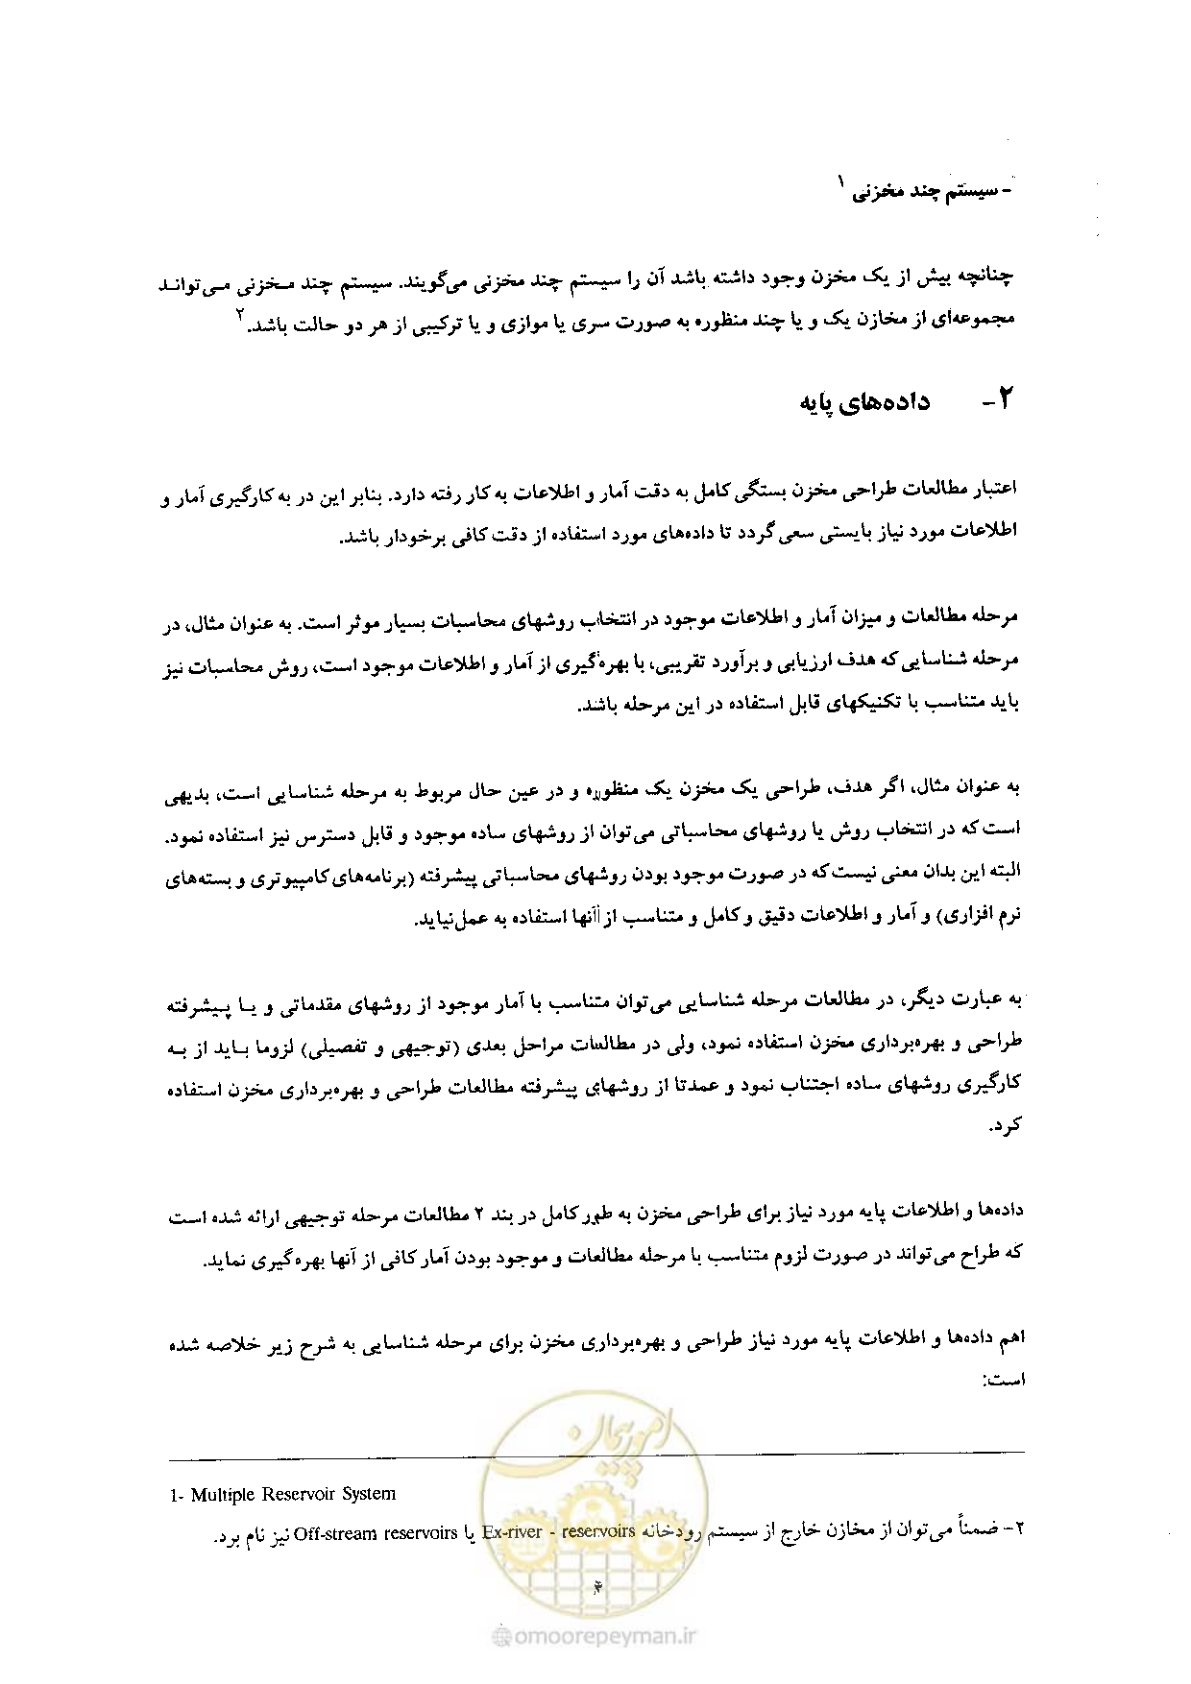 - سیستم چند مخزنی ۱
چنانچه بیش از یک مخزن وجود داشته باشد آن را سیستم چند مخزنی می‌گویند. سیستم چند مـخزنی مـی‌توانـد
مجموعه‌ای از مخازن یک و یا چند منظوره به صورت سری یا موازی و یا ترکیبی از هر دو حالت باشد.۲
۲- داده‌های پایه
اعتبار مطالعات طراحی مخزن بستگی کامل به دقت آمار و اطلاعات به کار رفته دارد. بنابر این در به کارگیری آمار و
اطلاعات مورد نیاز بایستی سعی گردد تا داده‌های مورد استفاده از دقت کافی برخودار باشد.
مرحله مطالعات و میزان آمار و اطلاعات موجود در انتخاب روشهای محاسبات بسیار موثر است. به عنوان مثال، در
مرحله شناسایی که هدف ارزیابی و برآورد تقریبی، با بهره‌گیری از آمار و اطلاعات موجود است، روش محاسبات نیز
باید متناسب با تکنیکهای قابل استفاده در این مرحله باشد.
به عنوان مثال، اگر هدف، طراحی یک مخزن یک منظوره و در عین حال مربوط به مرحله شناسایی است، بدیهی
است که در انتخاب روش یا روشهای محاسباتی می‌توان از روشهای ساده موجود و قابل دسترس نیز استفاده نمود.
البته این بدان معنی نیست که در صورت موجود بودن روشهای محاسباتی پیشرفته (برنامه‌های کامپیوتری و بسته‌های
نرم افزاری) و آمار و اطلاعات دقیق و کامل و متناسب از آنها استفاده به عمل نیاید.
به عبارت دیگر، در مطالعات مرحله شناسایی می‌توان متناسب با آمار موجود از روشهای مقدماتی و یـا پـیشرفته
طراحی و بهره‌برداری مخزن استفاده نمود، ولی در مطالعات مراحل بعدی (توجیهی و تفصیلی) لزوما بـاید از بـه
کارگیری روشهای ساده اجتناب نمود و عمدتا از روشهای پیشرفته مطالعات طراحی و بهره‌برداری مخزن استفاده
کرد.
داده‌ها و اطلاعات پایه مورد نیاز برای طراحی مخزن به طور کامل در بند ۲ مطالعات مرحله توجیهی ارائه شده است
که طراح می‌تواند در صورت لزوم متناسب با مرحله مطالعات و موجود بودن آمار کافی از آنها بهره‌گیری نماید.
اهم داده‌ها و اطلاعات پایه مورد نیاز طراحی و بهره‌برداری مخزن برای مرحله شناسایی به شرح زیر خلاصه شده
است:
1- Multiple Reservoir System
۲- ضمناً می‌توان از مخازن خارج از سیستم رودخانه Ex-river - reservoirs یا Off-stream reservoirs نیز نام برد.
امور پیمان
@omoorepeyman.ir